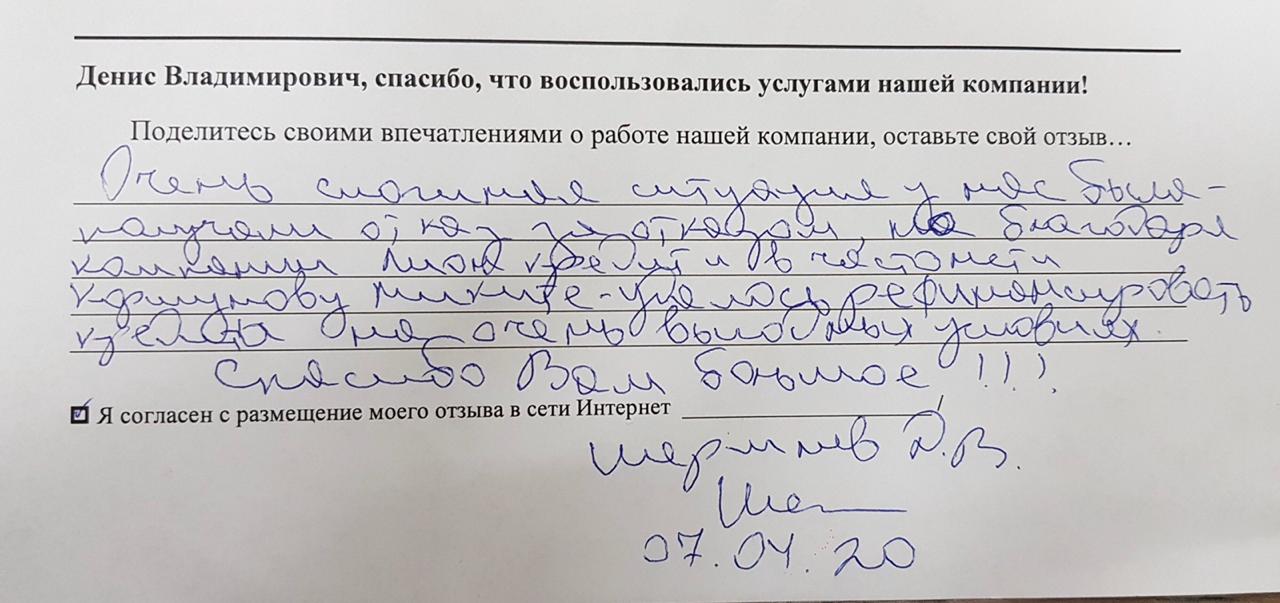 Денис Владимирович, спасибо, что воспользовались услугами нашей компании!
Поделитесь своими впечатлениями о работе нашей компании, оставьте свой отзыв…
Очень сложная ситуация у нас была -
получали отказ за отказом, но благодаря
компании Лион кредит и в частности
Коршунову Никите - удалось рефинансировать
кредиты на очень выгодных условиях.
Спасибо Вам большое !!!
Я согласен с размещение моего отзыва в сети Интернет
Д.В.
07.04.20